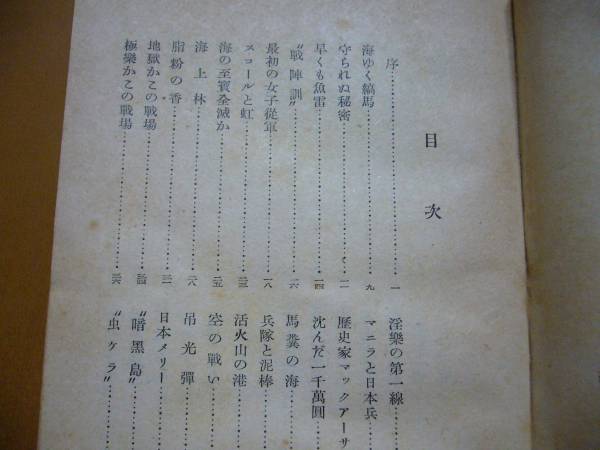 目次
序……………一
海ゆく縞馬……………九
守られぬ秘密……………一一
早くも魚雷……………一四
〝戰陣訓〟……………一六
最初の女子從軍……………一八
スコールと虹……………二三
海の至寳全滅か……………二五
海上林……………二八
脂粉の香……………三一
地獄かこの戰場……………三四
極樂かこの戰場……………三六
淫樂の第一線
マニラと日本兵
歷史家マックアーサ
沈んだ一千萬圓
馬糞の海
兵隊と泥棒
活火山の港
空の戰い
吊光彈
日本メリー
〝暗黑島〟
〝虫ケラ〟